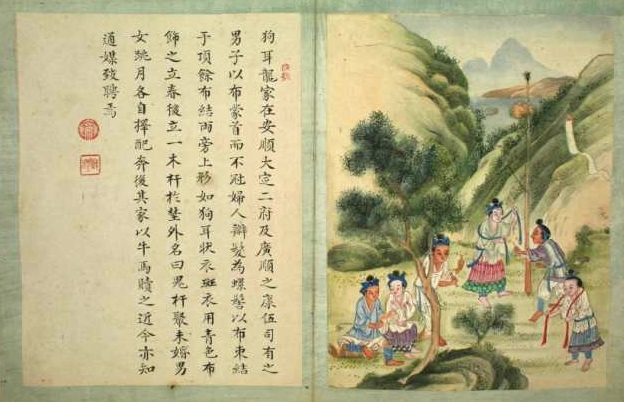 狗耳龍家在安順大定二府及廣順之康佐司有之
男子以布蒙首而不冠婦人辮髮為螺髻以布束結
于頂餘布結兩旁上形如狗耳狀衣斑衣用青色布
飾之立春後立一木杆於埜外名曰鬼杆聚未婚男
女跳月各自擇配奔後其家以牛馬贖之近今亦知
通媒致聘焉